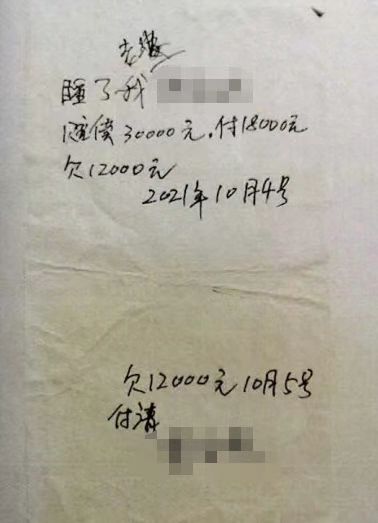 睡了我
赔偿30000元,付18000元
欠12000元
2021年10月4号
欠12000元10月5号
付清